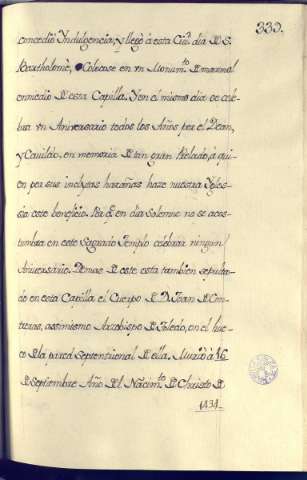 333.
concedió Yndulgencia, y llegò à esta Ciu.d dia D S.
Bartholomè, Colocose en vn Monum.to D marmol
enmedio D esta Capilla. Y en el mismo dia se cele
bra vn Aniversario todos los Años por el Dean,
y Cavildo, en memoria D tan gran Prelado, à qui
en por sus inclytas hazañas haze nuestra Ygle
sia este beneficio. Porq̃ en dia Solemne no se acos
tumbra en este Sagrado Templo celebrar ningun
Aniversario. Demas D este esta tambien sepulta
do en esta Capilla el Cuerpo D D. Joan D Con
treras, assimismo Arzobispo D Toledo, en el hue
co D la pared Septentrional D ella. Murió à 16
D Septiembre Año D l Nacim.to D Christo D
1434.